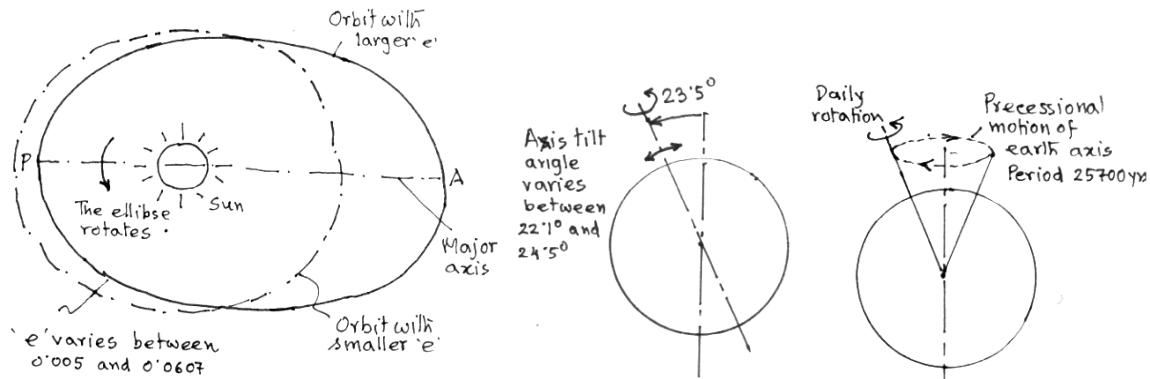 Orbit with
larger 'e'
P
A
Sun
The ellibse
rotates.
Major
axis
Orbit with
smaller 'e'
'e' varies between
0.005 and 0.0607
23.5°
Axis tilt
angle
varies
between
22.1° and
24.5°
Daily
rotation
Precessional
motion of
earth axis
Period 25700 yrs